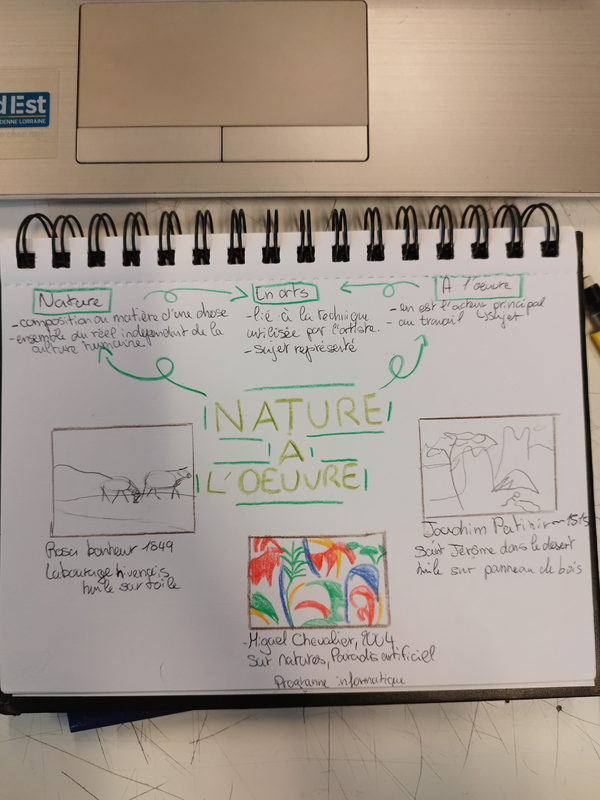 dEst
DENNE LORRAINE
Nature
En arts
A l'oeuvre
-composition ou matière d'une chose
-ensemble du réel indépendant de la
culture humaine
-lié à la technique
utilisée par l'artiste.
-sujet représenté
-en est l'acteur principal
-au travail ↳sujet
NATURE
À
L'OEUVRE
Rosa bonheur 1849
Labourage nivenais
huile sur toile
Joachim Patinir ~1515
saint Jérôme dans le desert
huile sur panneau de bois
-Miguel Chevalier, 2004
Sur natures, Paradis artificiel
Programme informatique